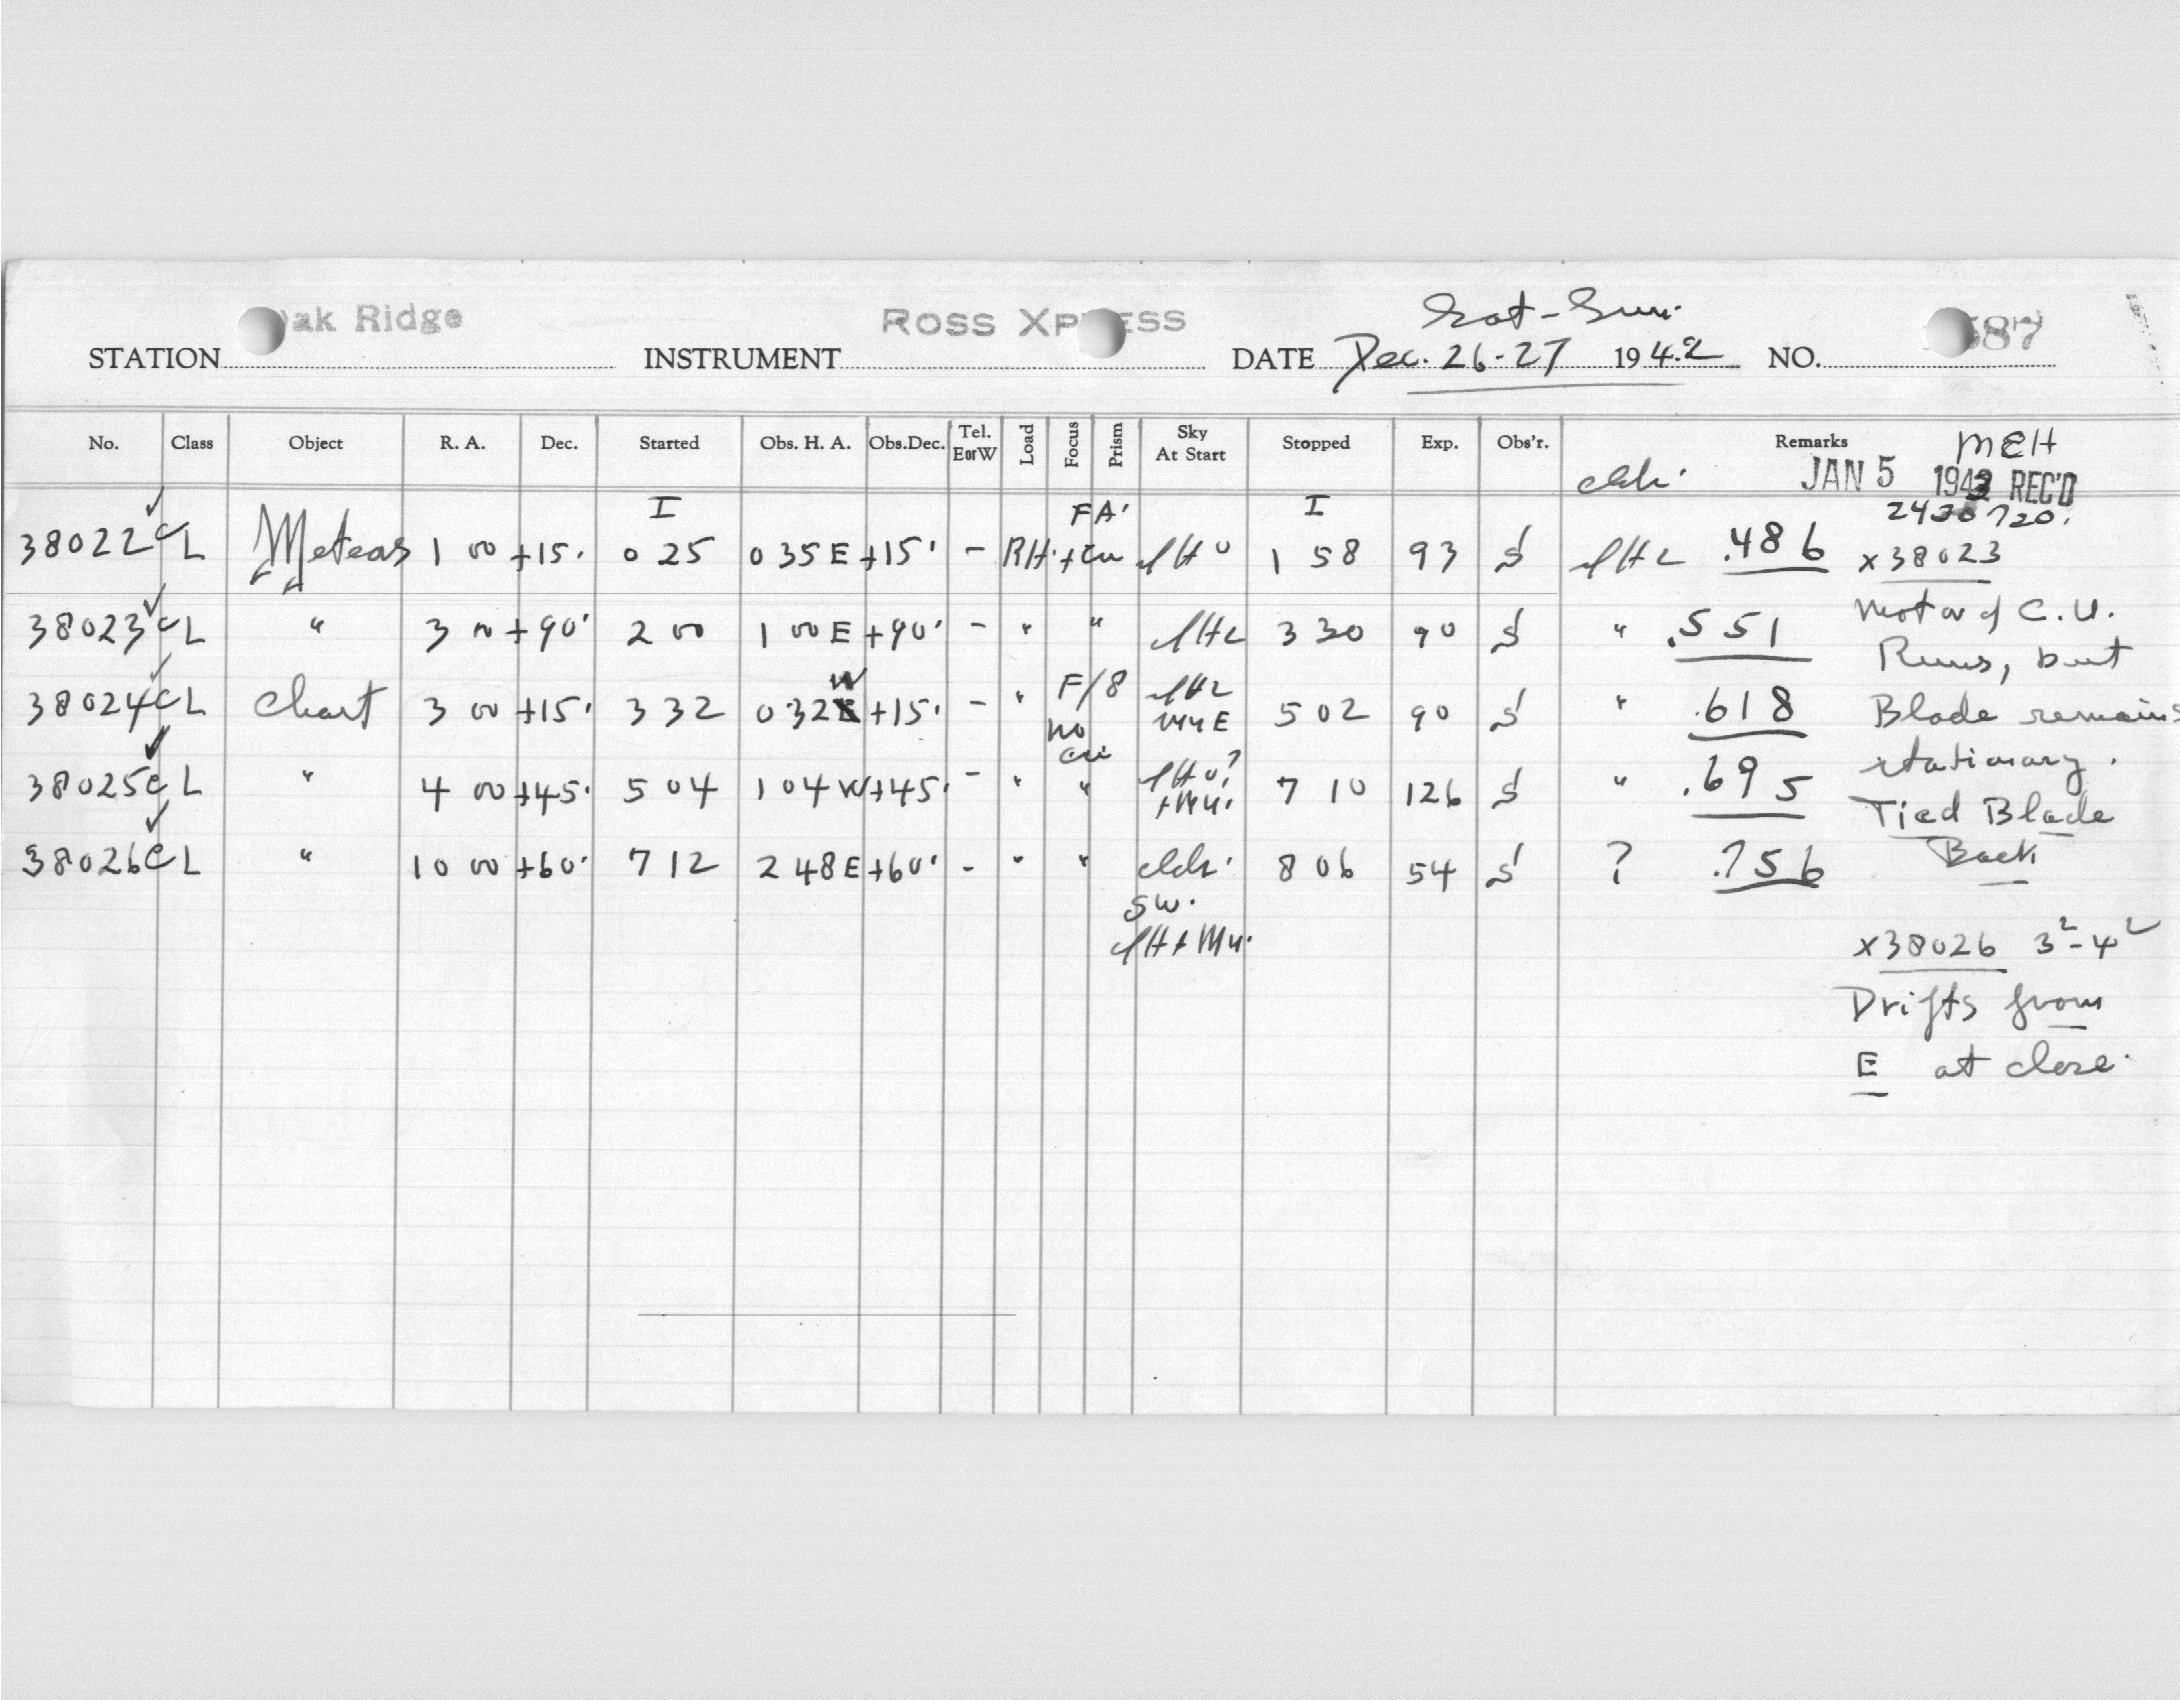 ak Ridge ROSS XP ESS Sat-Sun. 587
STATION INSTRUMENT DATE Dec. 26-27 1942 NO.
No. Class Object R. A. Dec. Started Obs. H. A. Obs.Dec. Tel. EorW Load Focus Prism Sky At Start Stopped Exp. Obs'r. Remarks MEH
JAN 5 1943 REC'D
I FA' I 2430720.
38022 CL Meteors 1 00 +15. 0 25 0 35 E +15' - RH. +Cu 1 58 93 S .486 x38023
38023 CL " 3 00 +90' 2 00 1 00 E +90' - " " 3 30 90 S " .551 Motor of C.U.
Runs, but
38024 CL Chart 3 00 +15' 3 32 0 32 W +15' - " F/8 no cu 5 02 90 S " .618 Blade remains
stationary.
38025 CL " 4 00 +45' 5 04 1 04 W +45' - " " 7 10 126 S " .695
Tied Blade
38026 CL " 10 00 +60' 7 12 2 48 E +60' - " " 8 06 54 S ? .756 Back
SW.
x38026 3²-4²
Drifts from
E at close.